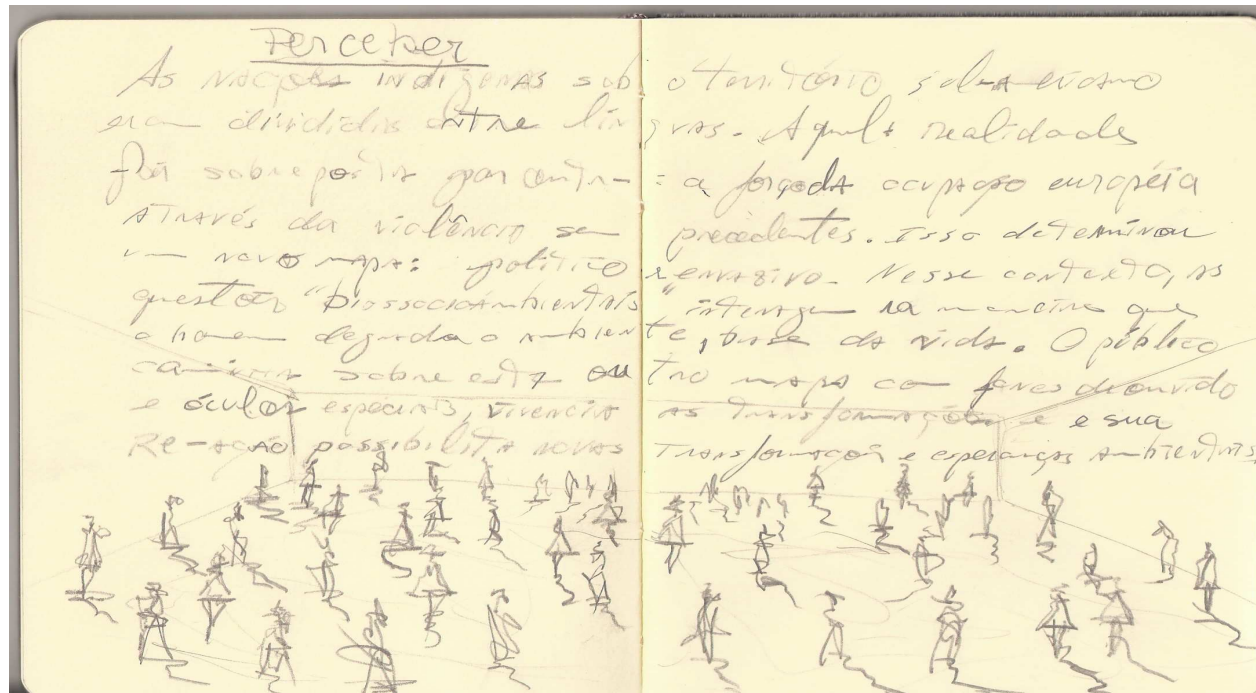 Perceber
As nações indígenas sob o território sul-a
eram divididas entre línguas. Aquela realidade
foi sobreposta por a forçada ocupação européia
através da violência sem precedentes. Isso determinou
um novo mapa: político envasivo. Nesse contexto, as
questões "biossocioambientais" interagem na maneira que
o homem degrada o ambiente, base da vida. O público
caminha sobre este outro mapa com fones de ouvido
e óculos especiais, vivencia as transformações e sua
Re-ação possibilita novas transformações e esperanças ambientais.